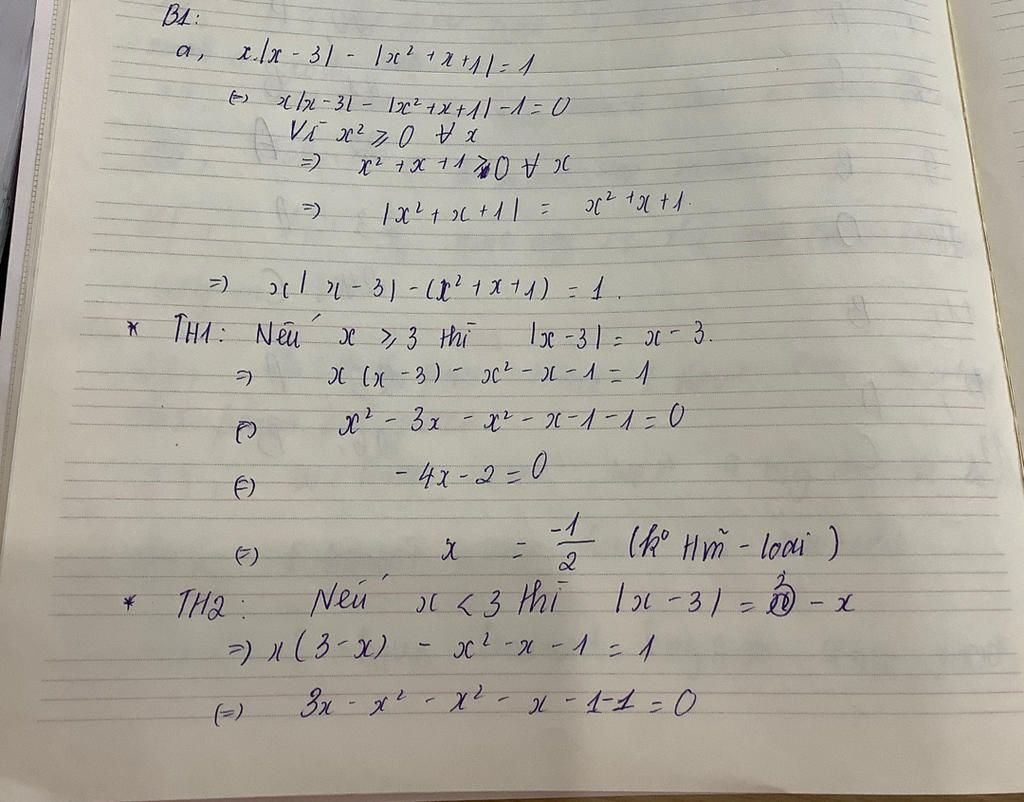 B1:
a, x.|x - 3| - |x² + x + 1| = 1
(=) x|x - 3| - |x² + x + 1| - 1 = 0
Vì x² ⩾ 0 ∀ x
=) x² + x + 1 ⩾ 0 ∀ x
=) |x² + x + 1| = x² + x + 1.
=) x| x - 3| - (x² + x + 1) = 1.
* TH1: Nếu x ⩾ 3 thì |x - 3| = x - 3.
=) x (x - 3) - x² - x - 1 = 1
(=) x² - 3x - x² - x - 1 - 1 = 0
(=) - 4x - 2 = 0
(=) x = -1/2 (k° tm - loại)
* TH2: Nếu x < 3 thì |x - 3| = 3 - x
=) x (3 - x) - x² - x - 1 = 1
(=) 3x - x² - x² - x - 1 - 1 = 0